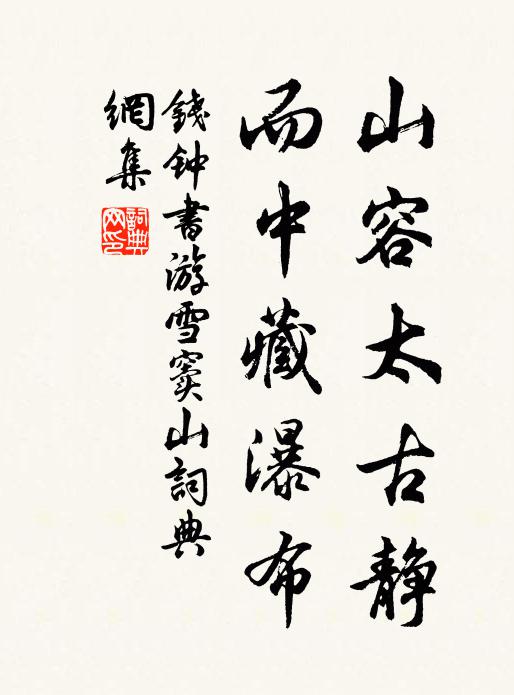 山容太古静
而中藏瀑布
錢钟書游雪窦山詞典
網集
詞典
网印